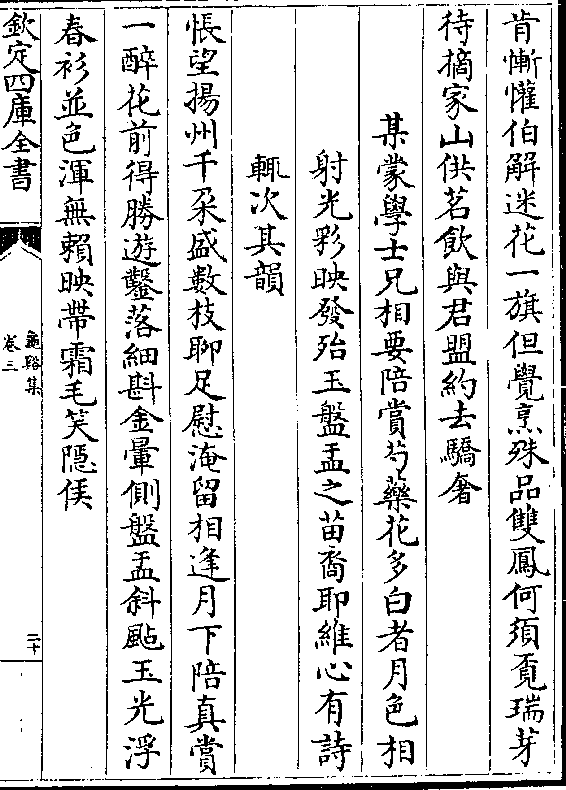 肯慚懽伯解迷花一旗但覺烹殊品雙鳳何須覔瑞芽
待摘家山供茗飲與君盟約去驕奢
某蒙學士兄相要陪賞芍藥花多白者月色相
射光彩映發殆玉盤盂之苗裔耶維心有詩
輒次其韻
悵望揚州千朶盛數枝聊足慰淹留相逢月下陪真賞
一醉花前得勝遊鑿落細斟金暈側盤盂斜颭玉光浮
春衫並色渾無賴映帶霜毛笑隱侯
欽定四庫全書
龜谿集
卷三
二十